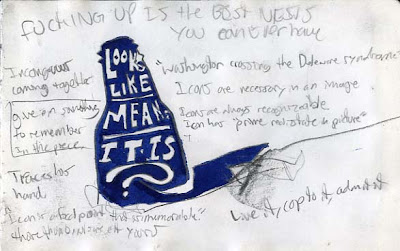 FUCKING UP IS the BEST NEWS
YOU can ever have
Incongruous
coming together
give em something
to remember
In the piece
Traces for
hand
LOOK
LIKE
MEAN.
IT IS
"Washington crossing the Delaware syndrome"
Icons are necessary in an image
Icons are always recognizable
Icon has "prime real estate in picture"
Icon is a focal point that is memorable."
Live it, cop to it, admit it